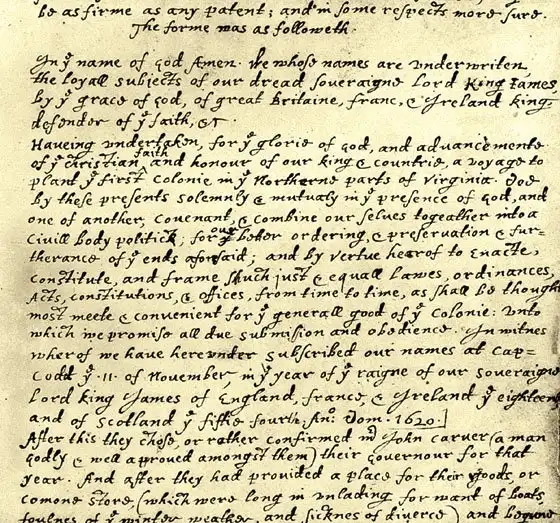 be as firme as any patent; and in some respects more sure.
The forme was as followeth.
In yᵉ name of god Amen. We whose names are underwriten,
the loyall subjects of our dread soveraigne Lord King James,
by yᵉ grace of god, of great Britaine, franc, & Ireland king,
defender of yᵉ faith, &c
Haveing undertaken, for yᵉ glorie of god, and advancemente
of yᵉ christian faith and honour of our king & countrie, a voyage to
plant yᵉ first colonie in yᵉ Northerne parts of Virginia. Doe
by these presents solemnly & mutualy in yᵉ presence of god, and
one of another, covenant, & combine our selves togeather into a
Civill body politick; for our better ordering, & preservation & fur=
therance of yᵉ ends aforesaid; and by vertue hearof to Enacte,
constitute, and frame shuch just & equall Lawes, ordinances,
Acts, constitutions, & offices, from time to time, as shall be though
most meete & convenient for yᵉ generall good of yᵉ Colonie: unto
which we promise all due submission and obedience. In witnes
wherof we have hereunder subscribed our names at Cap=
Codd yᵉ .11. of November, in yᵉ year of yᵉ raigne of our soveraigne
Lord king James of England, france, & Ireland yᵉ eighteen
and of Scotland yᵉ fiftie fourth. Anᵒ: Dom. 1620.]
After this they chose, or rather confirmed mʳ John carver (a man
godly & well aproved amongst them) their governour for that
year. And after they had provided a place for their goods, or
comone store, (which were long in unlading for want of boats,
foulnes of yᵉ winter weather, and sicknes of diverce) and begune